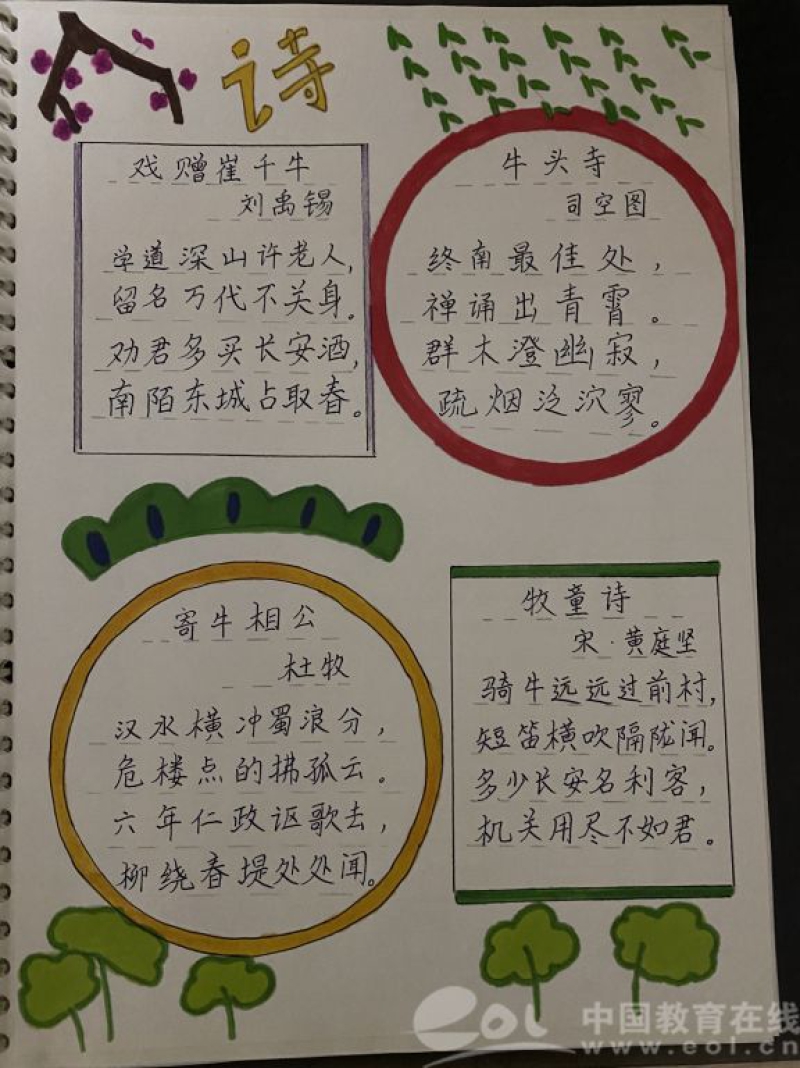 诗
戏赠崔千牛
刘禹锡
学道深山许老人,
留名万代不关身。
劝君多买长安酒,
南陌东城占取春。
牛头寺
司空图
终南最佳处，
禅诵出青霄。
群木澄幽寂，
疏烟泛泬寥。
寄牛相公
杜牧
汉水横冲蜀浪分，
危楼点的拂孤云。
六年仁政讴歌去，
柳绕春堤处处闻。
牧童诗
宋·黄庭坚
骑牛远远过前村,
短笛横吹隔陇闻。
多少长安名利客，
机关用尽不如君。
eol 中国教育在线
www.eol.cn